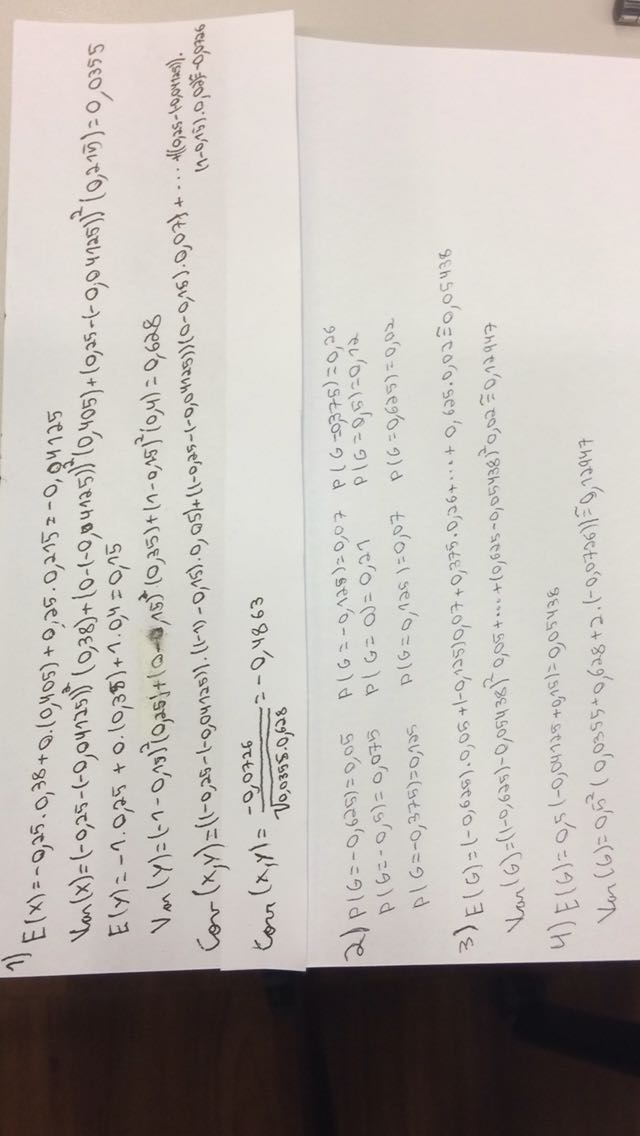 1) E(X) = -0,25·0,38 + 0·(0,405) + 0,25·0,215 = -0,04125
Var(X) = (-0,25-(-0,04125))²(0,38) + (0-(-0,04125))²(0,405) + (0,25-(-0,04125))²(0,215) = 0,0355
E(Y) = -1·0,25 + 0·(0,35) + 1·0,4 = 0,15
Var(Y) = (-1-0,15)²(0,25) + (0-0,15)²(0,35) + (1-0,15)²(0,4) = 0,628
Cov(X,Y) = ((-0,25-(-0,04125))·((-1)-0,15)·0,05) + ((-0,25-(-0,04125))(0-0,15)·0,07) + ... + ((0,25-(-0,04125))·
(1-0,15)·0,02) = -0,0726
Corr(X,Y) = -0,0726 / √0,0355·0,628 = -0,4863
2) P(G=-0,625) = 0,05 P(G=-0,125) = 0,07 P(G=0,375) = 0,26
P(G=-0,5) = 0,075 P(G=0) = 0,21 P(G=0,5) = 0,12
P(G=-0,375) = 0,125 P(G=0,125) = 0,07 P(G=0,625) = 0,02
3) E(G) = (-0,625)·0,05 + (-0,125)0,07 + 0,375·0,26 + ... + 0,625·0,02 ≅ 0,05438
Var(G) = ((-0,625)-0,05438)² 0,05 + ... + (0,625-0,05438)² 0,02 ≅ 0,12947
4) E(G) = 0,5(-0,04125+0,15) = 0,05438
Var(G) = 0,5²(0,0355+0,628+2·(-0,0726)) ≅ 0,12947